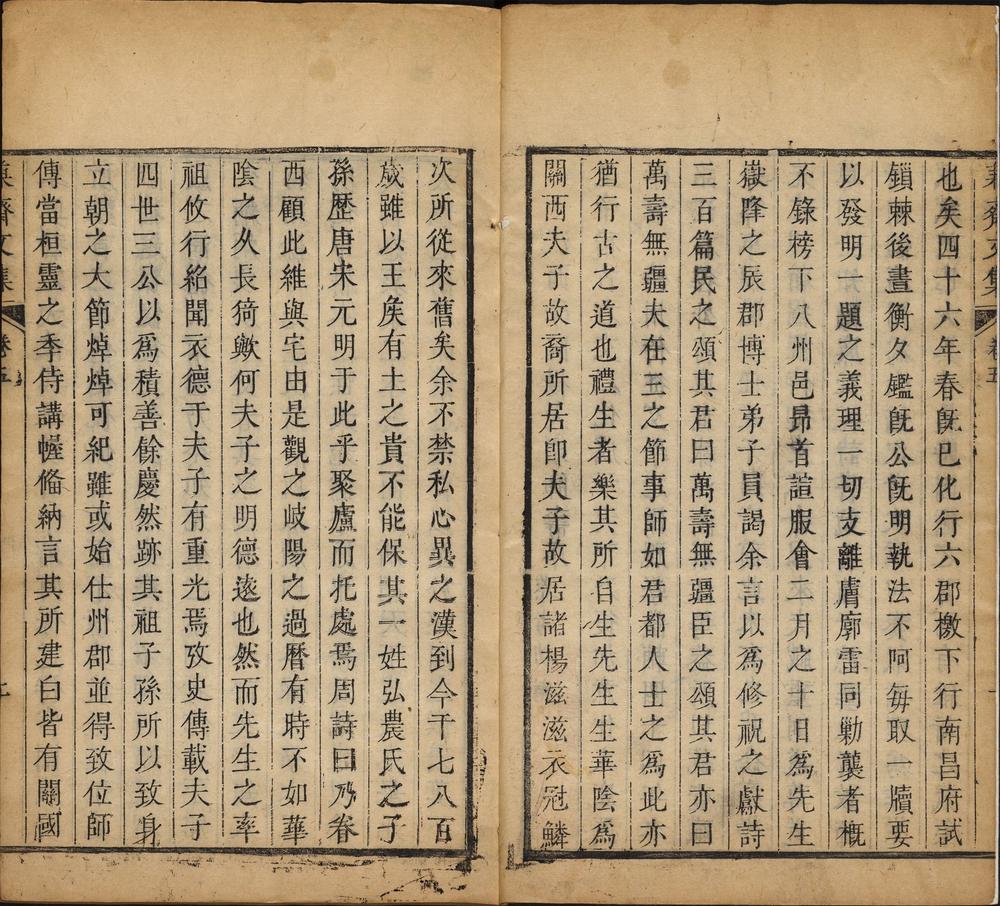 齋文集 卷五
也矣四十六年春旣巳化行六郡檄下行南昌府試
鎖棘後晝衡夕鑑旣公旣明執法不阿每取一牘要
以發明一題之義理一切支離膚廓雷同勦襲者概
不錄榜下八州邑昻首諠服會二月之十日為先生
嶽降之辰郡博士弟子員謁余言以爲修祝之獻詩
三百篇民之頌其君曰萬壽無疆臣之頌其君亦曰
萬壽無疆夫在三之節事師如君都人士之爲此亦
猶行古之道也禮生者樂其所自生先生生華陰爲
關西夫子故裔所居卽夫子故居諸楊滋滋衣冠鱗
次所從來舊矣余不禁私心異之漢到今千七八百
歲雖以王矦有土之貴不能保其一姓弘農氏之子
孫歷唐宋元明于此乎聚廬而托處焉周詩曰乃眷
西顧此維與宅由是觀之岐陽之過曆有時不如華
陰之久長猗歟何夫子之明德遠也然而先生之率
祖攸行紹聞衣德于夫子有重光焉攷史傳載夫子
四世三公以爲積善餘慶然跡其祖子孫所以致身
立朝之大節焯焯可紀雖或始仕州郡並得致位師
傳當桓靈之季侍講幄僃納言其所建白皆有關國
齋文集 卷五